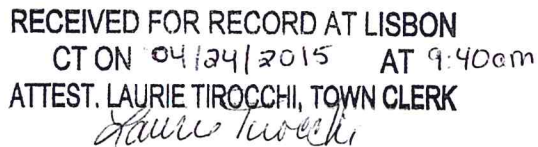 RECEIVED FOR RECORD AT LISBON
CT ON 04/24/2015 AT 9:40am
ATTEST. LAURIE TIROCCHI, TOWN CLERK
Laurie Tirocchi